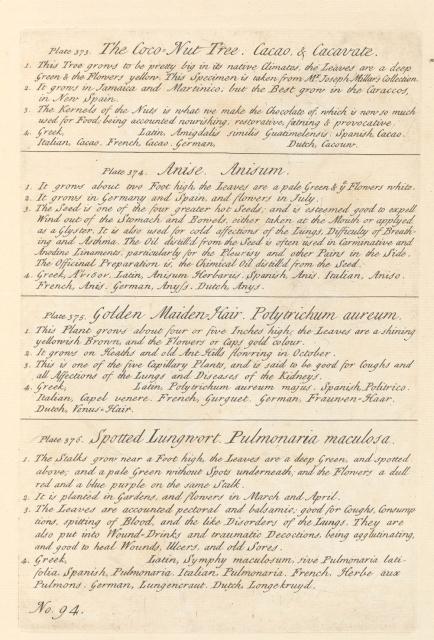 Plate 373. The Coco-Nut Tree. Cacao, & Cacavate.
1. This Tree grows to be pretty big in its native Climates, the Leaves are a deep
Green & the Flowers yellow. This Specimen is taken from Mr. Joseph Millar's Collection.
2. It grows in Jamaica and Martinico, but the Best grow in the Caraccos,
in New Spain.
3. The Kernels of the Nuts is what we make the Chocolate of, which is now so much
used for Food; being accounted nourishing, restorative, fatning & provocative.
4. Greek, Latin, Amigdalis similis Guatimelensis. Spanish, Cacao.
Italian, Cacao. French, Cacao. German, Dutch, Cacouw.
Plate 374. Anise. Anisum.
1. It grows about two Foot high, the Leaves are a pale Green & ye Flowers white.
2. It grows in Germany and Spain, and flowers in July.
3. The Seed is one of the four greater hot Seeds, and is esteemed good to expell
Wind out of the Stomach and Bowels, either taken at the Mouth or applyed
as a Glyster. It is also used for cold affections of the Lungs, Difficulty of Breath-
ing and Asthma. The Oil distill'd from the Seed is often used in Carminative and
Anodine Linaments, particularly for the Pleurisy and other Pains in the Side.
The Officinal Preparation is, the Chimical Oil distill'd from the Seed.
4. Greek, Latin, Anisum Herbariis, Spanish, Anis. Italian, Aniso.
French, Anis. German, Anyss. Dutch, Anys.
Plate 375. Golden Maiden-Hair. Polytrichum aureum.
1. This Plant grows about four or five Inches high; the Leaves are a shining
yellowish Brown, and the Flowers or Caps gold colour.
2. It grows on Heaths and old Ant-Hills flow'ring in October.
3. This is one of the five Capillary Plants, and is said to be good for Coughs and
all Affections of the Lungs and Diseases of the Kidneys.
4. Greek, Latin, Polytrichum aureum majus. Spanish, Politrico.
Italian, Capel venere. French, Gurguet. German, Frauwen-Haar.
Dutch, Venus-Hair.
Plate 376. Spotted Lungwort. Pulmonaria maculosa.
1. The Stalks grow near a Foot high, the Leaves are a deep Green, and spotted
above; and a pale Green without Spots underneath, and the Flowers a dull
red and a blue purple on the same Stalk.
2. It is planted in Gardens, and flowers in March and April.
3. The Leaves are accounted pectoral and balsamic, good for Coughs, Consump
tions, spitting of Blood, and the like Disorders of the Lungs. They are
also put into Wound-Drinks and traumatic Decoctions, being agglutinating,
and good to heal Wounds, Ulcers, and old Sores.
4. Greek, Latin, Symphy maculosum, sive Pulmonaria lati-
folia. Spanish, Pulmonaria. Italian, Pulmonaria. French, Herbe aux
Pulmons. German, Lungencraut. Dutch, Longekruyd.
No. 94.